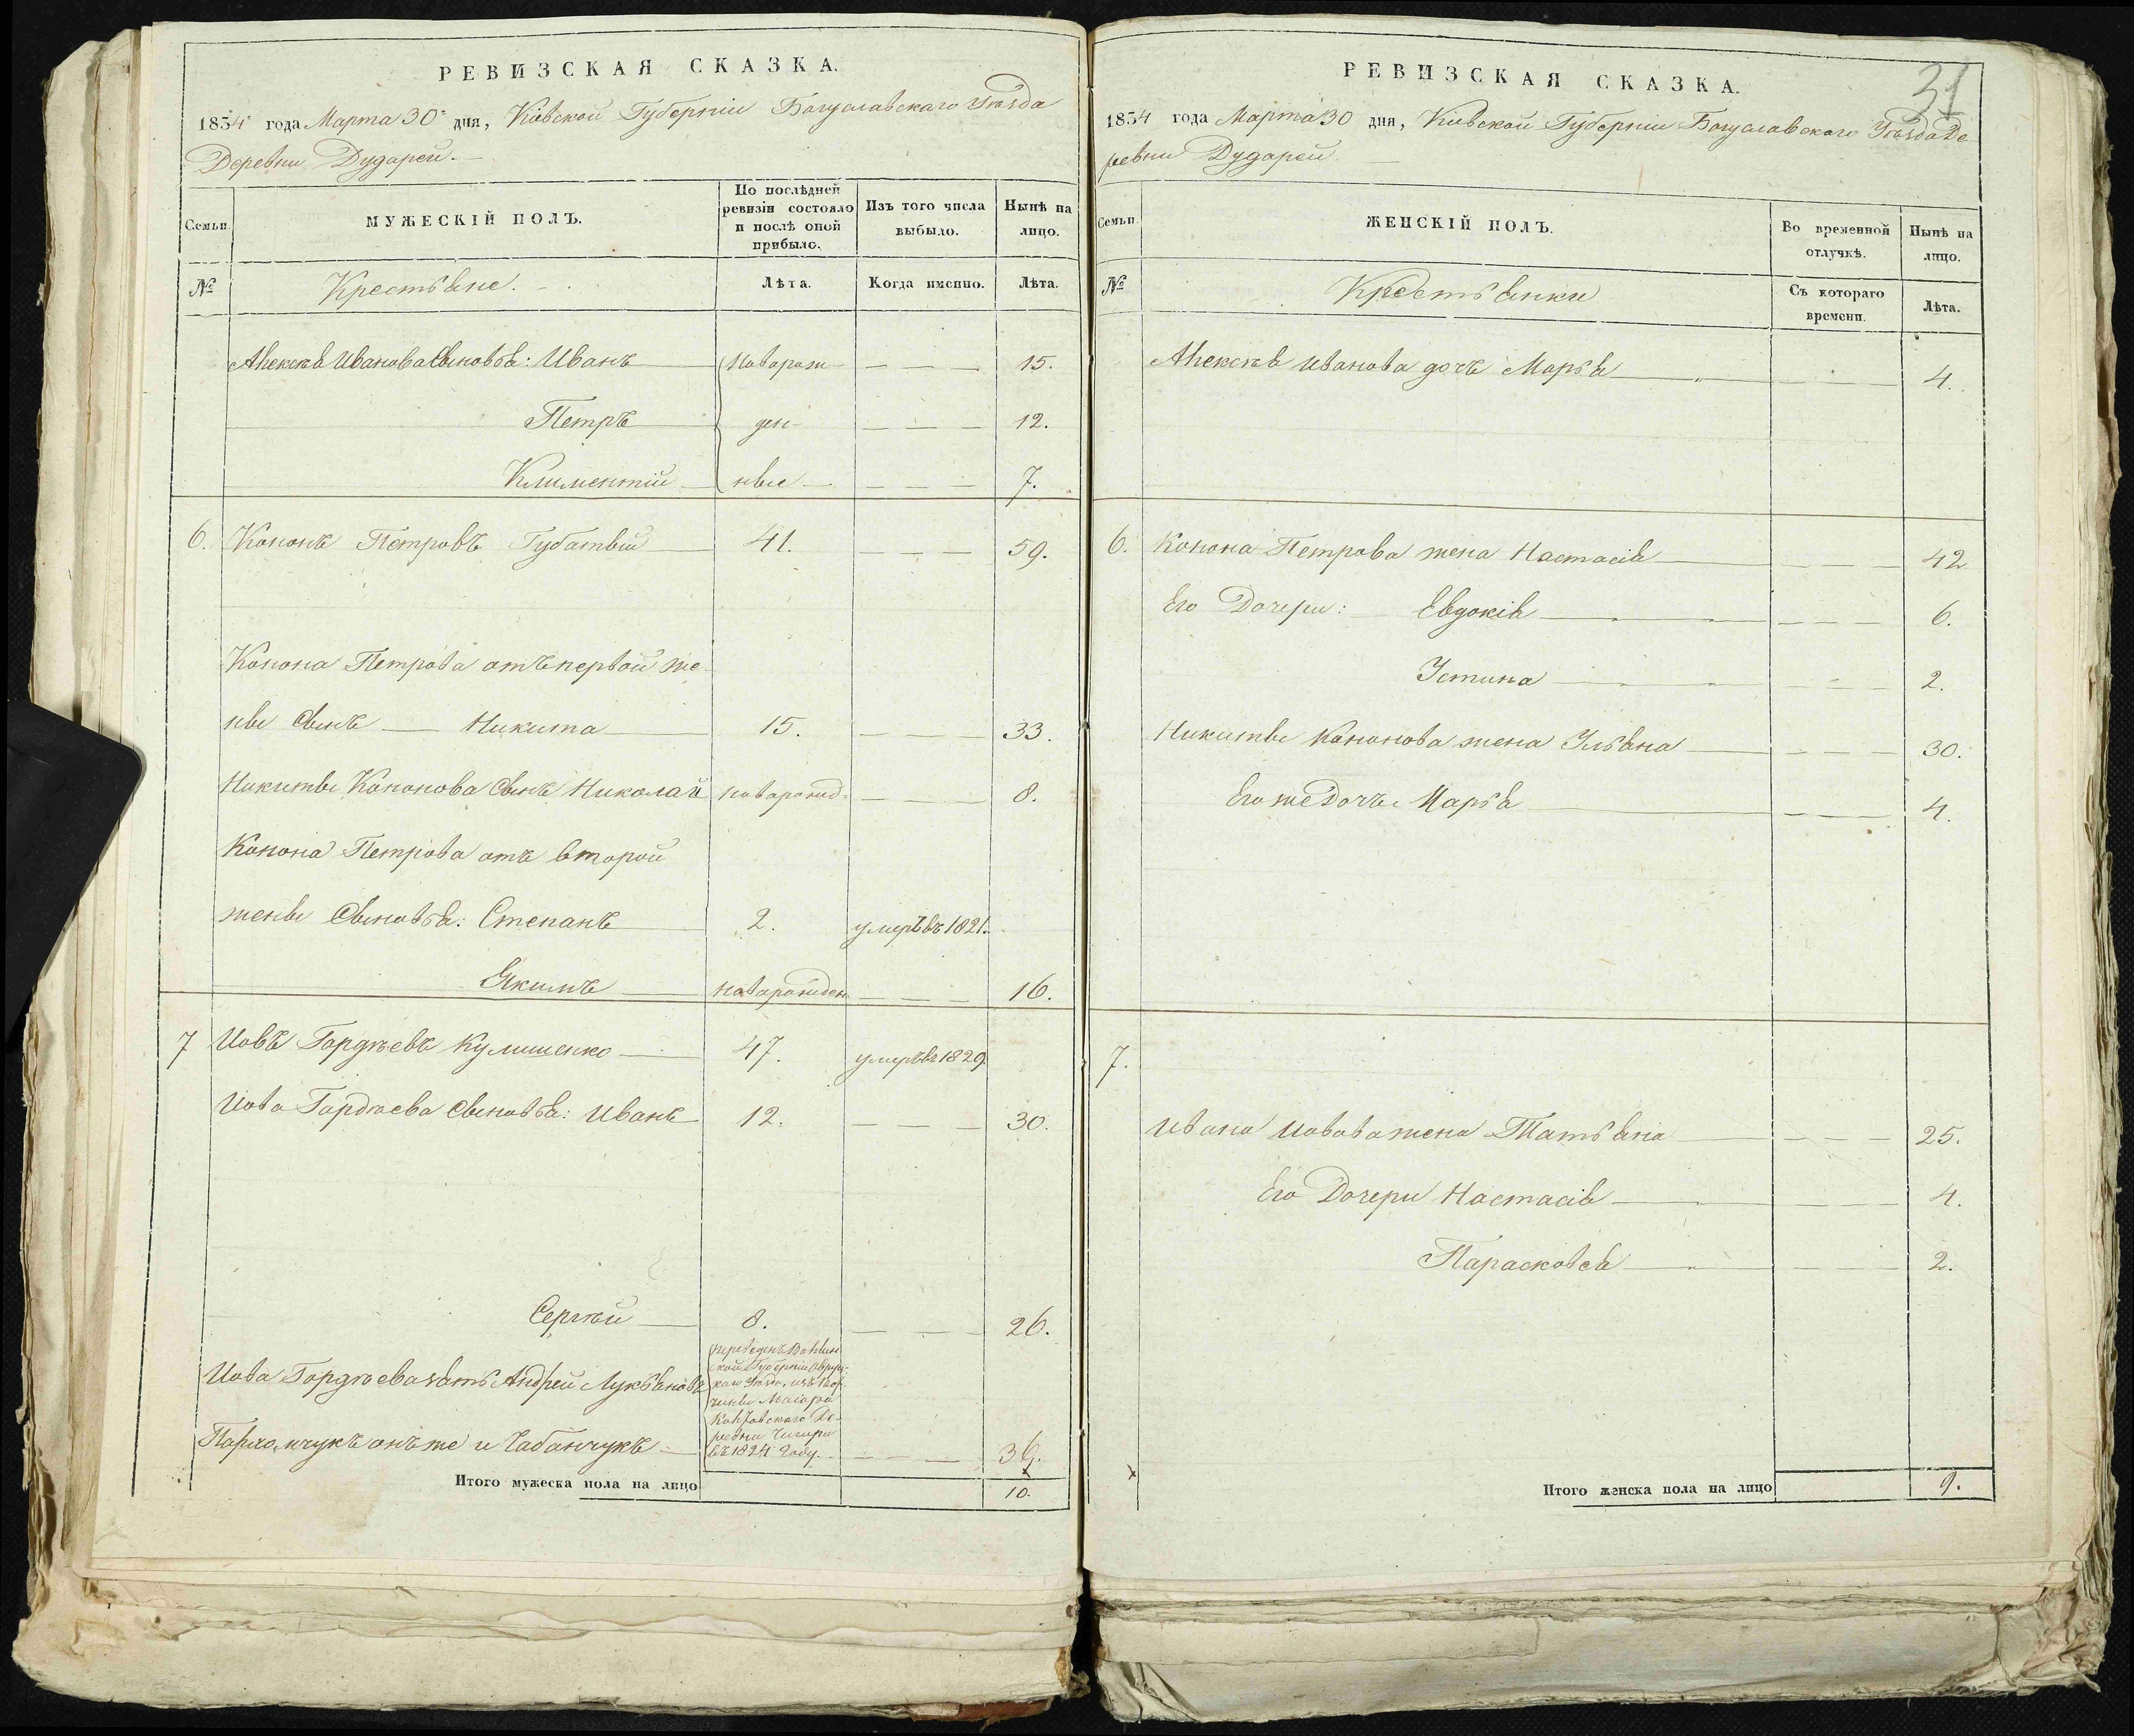 РЕВИЗСКАЯ СКАЗКА.
1834 года Марта 30 дня, Кіевской Губерніи Богуславскаго Уѣзда
Деревни Дударей.
Семьи
МУЖЕСКІЙ ПОЛЪ.
По послѣдней ревизіи состояло и послѣ оной прибыло.
Изъ того числа выбыло.
Нынѣ на лицо.
№
Крестьяне.
Лѣта.
Когда имянно.
Лѣта.
Алексѣя Иванова Сыновья: Иванъ новорож- 15.
Петръ ден- 12.
Климентій ные 7.
6. Кононъ Петровъ Губатый 41. 59.
Конона Петрова отъ первой же-
ны Сынъ Никита 15. 33.
Никиты Кононова Сынъ Николай новорожд. 8.
Конона Петрова отъ второй
жены Сыновья: Степанъ 2. умеръ въ 1821.
Якимъ новорожден 16.
7 Іовъ Гордѣевъ Кулишенко 47. умеръ въ 1829
Іова Гордѣева Сыновья: Иванъ 12. 30.
Сергѣй 8. 26.
Іова Гордѣева зять Андрей Лукьяновъ
Пархомчукъ онъ же и Чабанчукъ
переведенъ Волын
ской Губерніи Овруч-
каго Уѣзда, изъ
Маіора
Де-
ревни
въ 1824 году.
36.
Итого мужеска пола на лицо 10.
РЕВИЗСКАЯ СКАЗКА.
31
1834 года Марта 30 дня, Кіевской Губерніи Богуславскаго Уѣзда Де
ревни Дударей
Семьи
ЖЕНСКІЙ ПОЛЪ.
Во временной отлучкѣ.
Нынѣ на лицо.
№
Крестьянки
Съ котораго времени.
Лѣта.
Алексѣя Иванова дочь Марья 4.
6. Конона Петрова жена Настасія 42
Его Дочери: Евдокія 6.
Устина 2.
Никиты Кононова жена Ульяна 30.
Его же Дочь Марья 4.
7.
Ивана Іовова жена Татьяна 25.
Его Дочери Настасія 4.
Парасковея 2.
Итого женска пола на лицо 9.